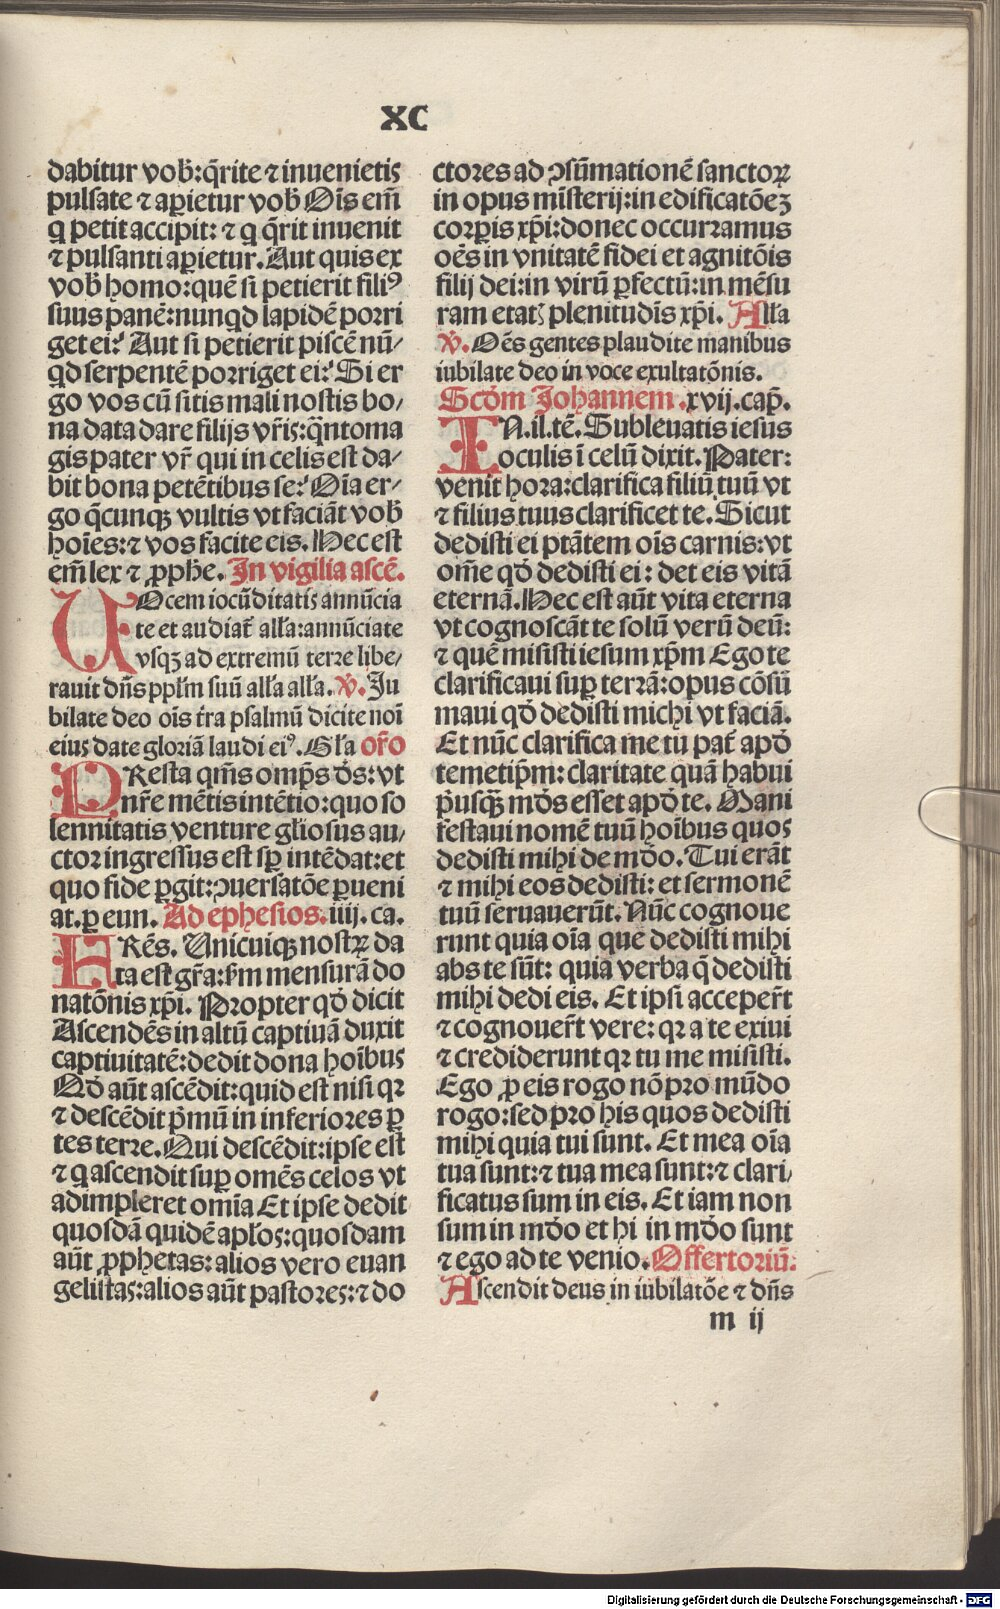 XC
dabitur vob̄: q̄rite ⁊ inuenietis
pulsate ⁊ aꝑietur vob̄ Oīs em̄
q petit accipit: ⁊ q q̄rit inuenit
⁊ pulsanti aꝑietur. Aut quis ex
vob̄ homo: quē si petierit filiꝰ
suus panē: nunqd lapidē porri
get ei: Aut si petierit piscē nū-
qd serpentē porriget ei: Si er
go vos cū sitis mali nostis bo/
na data dare filijs vr̄is: q̄ntoma
gis pater vr̄ qui in celis est da-
bit bona petētibus se: Oīa er-
go q̄cunqꝫ vultis vt faciāt vob̄
hoīes: ⁊ vos facite eis. Hec est
em̄ lex ⁊ ꝓphe. In vigilia ascē.
VOcem iocūditatis annūcia
te et audiat̄ all'a: annūciate
vsqꝫ ad extremū terre libe/
rauit dn̄s ppl'm suū all'a all'a. v̄. Ju
bilate deo oīs t̄ra psalmū dicite noī
eius date gloriā laudi eiꝰ. Gl'a or̄o
PResta qm̄s omp̄s ds̄: vt
nr̄e mētis intētio: quo so
lennitatis venture gl'iosus au/
ctor ingressus est sꝑ intēdat: et
quo fide ꝑgit: ꝯuersatōe ꝑueni
at. ꝑ eun. Ad ephesios. iiij. ca.
FRēs. Unicuiqꝫ nostrꝝ da
ta est gr̄a: scd̄m mensurā do
natōnis xp̄i. Propter qd̄ dicit
Ascendēs in altū captiuā duxit
captiuitatē: dedit dona hoībus
Qd̄ aūt ascēdit: quid est nisi qꝛ
⁊ descēdit p̄mū in inferiores ꝑ
tes terre. Qui descēdit: ipse est
⁊ q ascendit suꝑ omēs celos vt
adimpleret omīa Et ipse dedit
quosdā quidē apl'os: quosdam
aūt ꝓphetas: alios vero euan
gelistas: alios aūt pastores: ⁊ do
ctores ad ꝯsūmationē sanctorꝝ
in opus mīsterij: in edificatōeꝫ
corꝑis xp̄i: donec occurramus
oēs in vnitatē fidei et agnitōis
filij dei: in virū ꝑfectū: in mēsu
ram etatꝭ plenitudīs xp̄i. All'a
v̄. Oēs gentes plaudite manibus
iubilate deo in voce exultatōnis.
Scd̄m Johannem. xvij. cap̄.
IN. il. tē. Subleuatis iesus
oculis ī celū dixit. Pater:
venit hora: clarifica filiū tuū vt
⁊ filius tuus clarificet te. Sicut
dedisti ei ptātem oīs carnis: vt
om̄e qd̄ dedisti ei: det eis vitā
eternā. Hec est aūt vita eterna
vt cognoscāt te solū verū deū:
⁊ quē misisti iesum xp̄m Ego te
clarificaui suꝑ terrā: opus cōsū
maui qd̄ dedisti michi vt faciā.
Et nūc clarifica me tu pat̄ apd̄
temetip̄m: claritate quā habui
p̄usqꝫ md̄s esset apd̄ te. Mani
festaui nomē tuū hoībus quos
dedisti mihi de md̄o. Tui erāt
⁊ mihi eos dedisti: et sermonē
tuū seruauerūt. Nūc cognoue
runt quia oīa que dedisti mihi
abs te sūt: quia verba q̄ dedisti
mihi dedi eis. Et ipsi acceper̄t
⁊ cognouer̄t vere: qꝛ a te exiui
⁊ crediderunt qꝛ tu me misisti.
Ego ꝓ eis rogo nō pro mūdo
rogo: sed pro his quos dedisti
mihi quia tui sunt. Et mea oīa
tua sunt: ⁊ tua mea sunt: ⁊ clari/
ficatus sum in eis. Et iam non
sum in md̄o et hi in md̄o sunt
⁊ ego ad te venio. Offertoriū.
Ascendit deus in iubilatōe ⁊ dn̄s
m ij
Digitalisierung gefördert durch die Deutsche Forschungsgemeinschaft - DFG